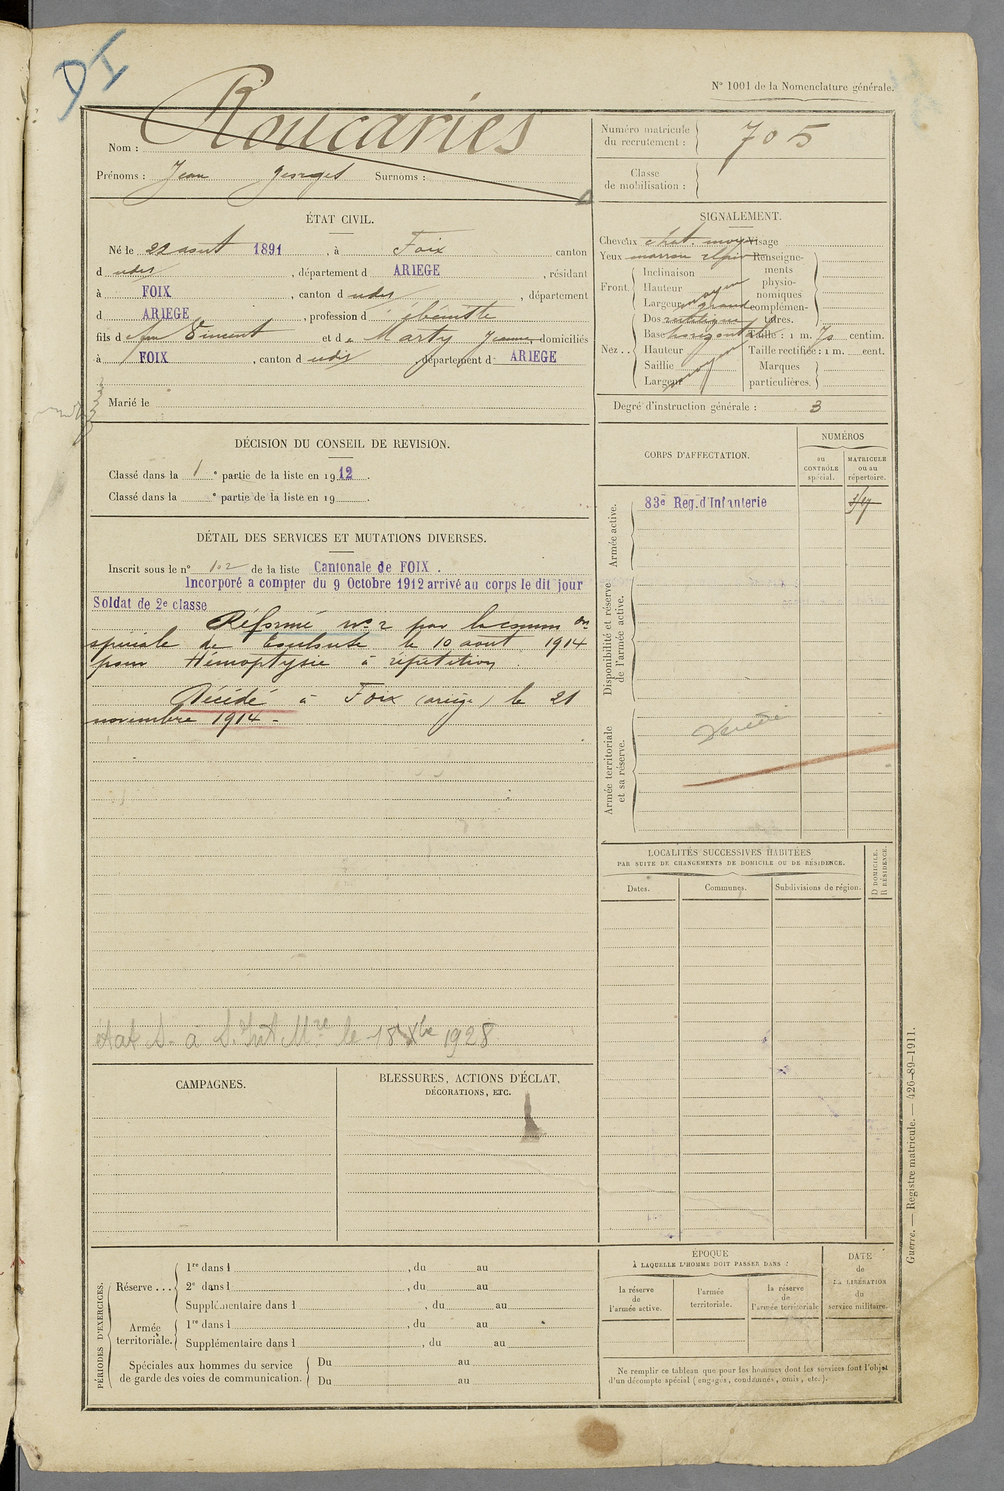 DI
N° 1001 de la Nomenclature générale.
Nom : Roucariès
Prénoms : Jean Georges Surnoms :
Numéro matricule du recrutement : 705
Classe de mobilisation :
ÉTAT CIVIL.
Né le 22 aout 1891, à Foix canton
d udit, département d ARIEGE, résidant
à FOIX, canton d udit, département
d ARIEGE, profession d ébéniste
fils d Vincent et de Marty Jeanne domiciliés
à FOIX, canton d udit, département d ARIEGE
Marié le
SIGNALEMENT.
Cheveux chat. moy Visage
Yeux marron Renseigne-
ments
physio-
nomiques
complémen-
taires.
Front. Inclinaison
Hauteur moyen
Largeur grand
Nez.. Dos rectiligne
Base horizontale Taille : 1 m. 70 centim.
Hauteur Taille rectifiée : 1 m. cent.
Saillie moyen Marques
Largeur particulières.
Degré d'instruction générale : 3
DÉCISION DU CONSEIL DE REVISION.
Classé dans la 1 e partie de la liste en 1912.
Classé dans la e partie de la liste en 19 .
CORPS D'AFFECTATION.
NUMÉROS
au CONTRÔLE spécial.
MATRICULE ou au répertoire.
Armée active.
83e Reg. d'Infanterie
Disponibilité et réserve de l'armée active.
Armée territoriale et sa réserve.
DÉTAIL DES SERVICES ET MUTATIONS DIVERSES.
Inscrit sous le n° 102 de la liste Cantonale de FOIX.
Incorporé a compter du 9 Octobre 1912 arrivé au corps le dit jour
Soldat de 2e classe
Réformé n° 2 par la comm on
spéciale de Toulouse le 10 aout 1914
pour Hémoptysie à répétition
Décédé à Foix (ariège) le 21
novembre 1914 -
le 18 Xbre 1928
LOCALITÉS SUCCESSIVES HABITÉES
PAR SUITE DE CHANGEMENTS DE DOMICILE OU DE RÉSIDENCE.
Dates.
Communes.
Subdivisions de région.
D DOMICILE.
R RÉSIDENCE.
CAMPAGNES.
BLESSURES, ACTIONS D'ÉCLAT,
DÉCORATIONS, ETC.
PÉRIODES D'EXERCICES.
Réserve... 1re dans l , du au
2e dans l , du au
Supplémentaire dans l , du au
Armée territoriale. 1re dans l , du au
Supplémentaire dans l , du au
Spéciales aux hommes du service
de garde des voies de communication. Du au
Du au
ÉPOQUE
À LAQUELLE L'HOMME DOIT PASSER DANS :
la réserve de l'armée active.
l'armée territoriale.
la réserve de l'armée territoriale
DATE de LA LIBÉRATION du service militaire.
Ne remplir ce tableau que pour les hommes dont les services font l'objet
d'un décompte spécial (engagés, condamnés, omis, etc.).
Guerre. — Registre matricule. — 426-89-1911.